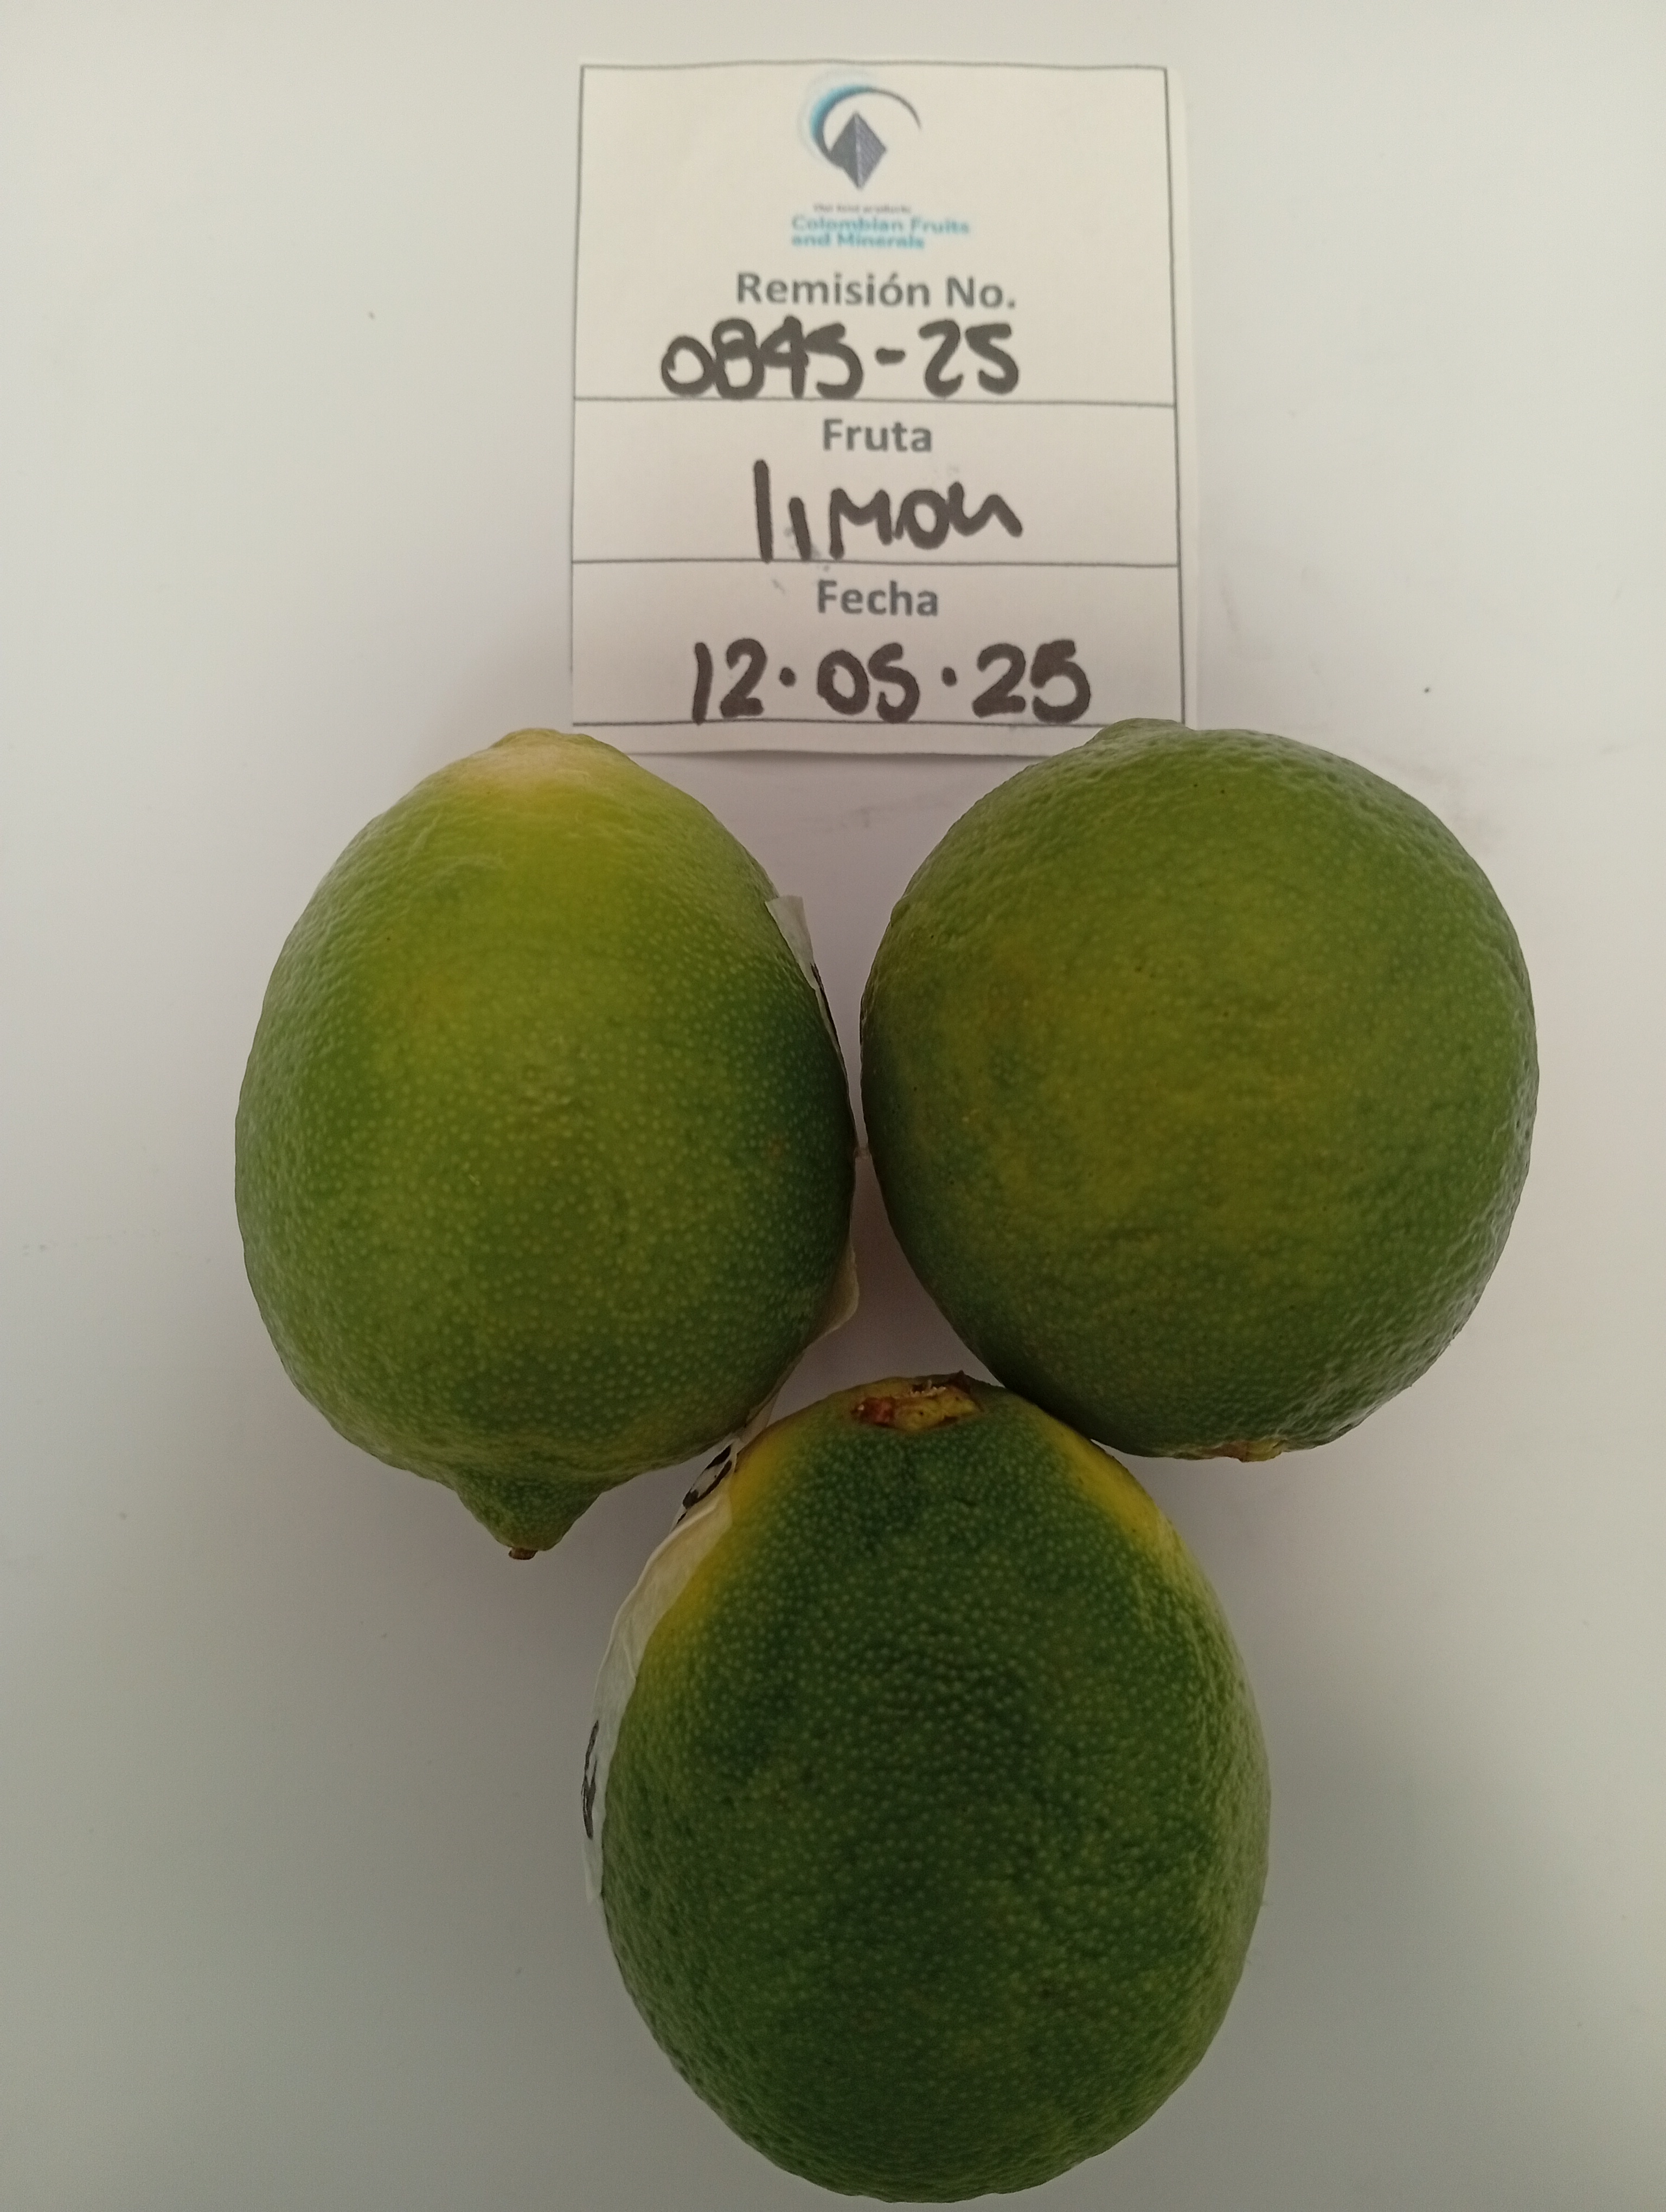 Colombian Fruits
and Minerals
Remisión No.
0845-25
Fruta
limon
Fecha
12.05.25